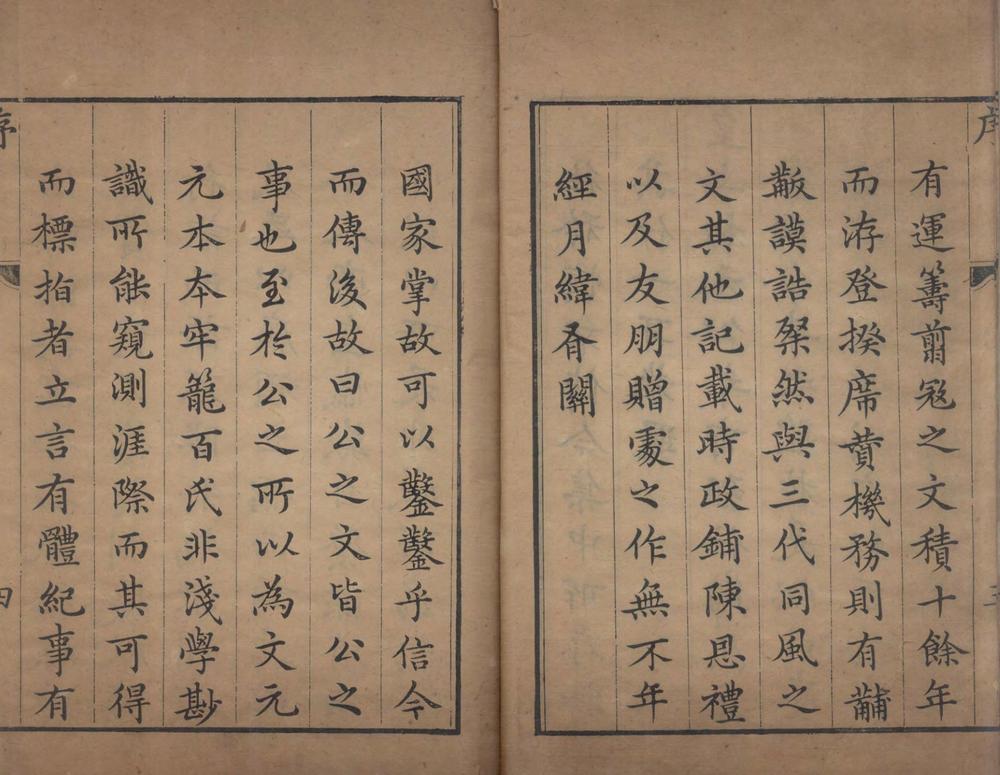 序
三
有運籌翦寇之文積十餘年
而洊登揆席贊機務則有黼
黻謨誥粲然與三代同風之
文其他記載時政鋪陳恩禮
以及友朋贈處之作無不年
經月緯胥關
國家掌故可以鑿鑿乎信今
而傳後故曰公之文皆公之
事也至於公之所以為文元
元本本牢籠百氏非淺學尠
識所能窺測涯際而其可得
而標指者立言有體紀事有
序
四